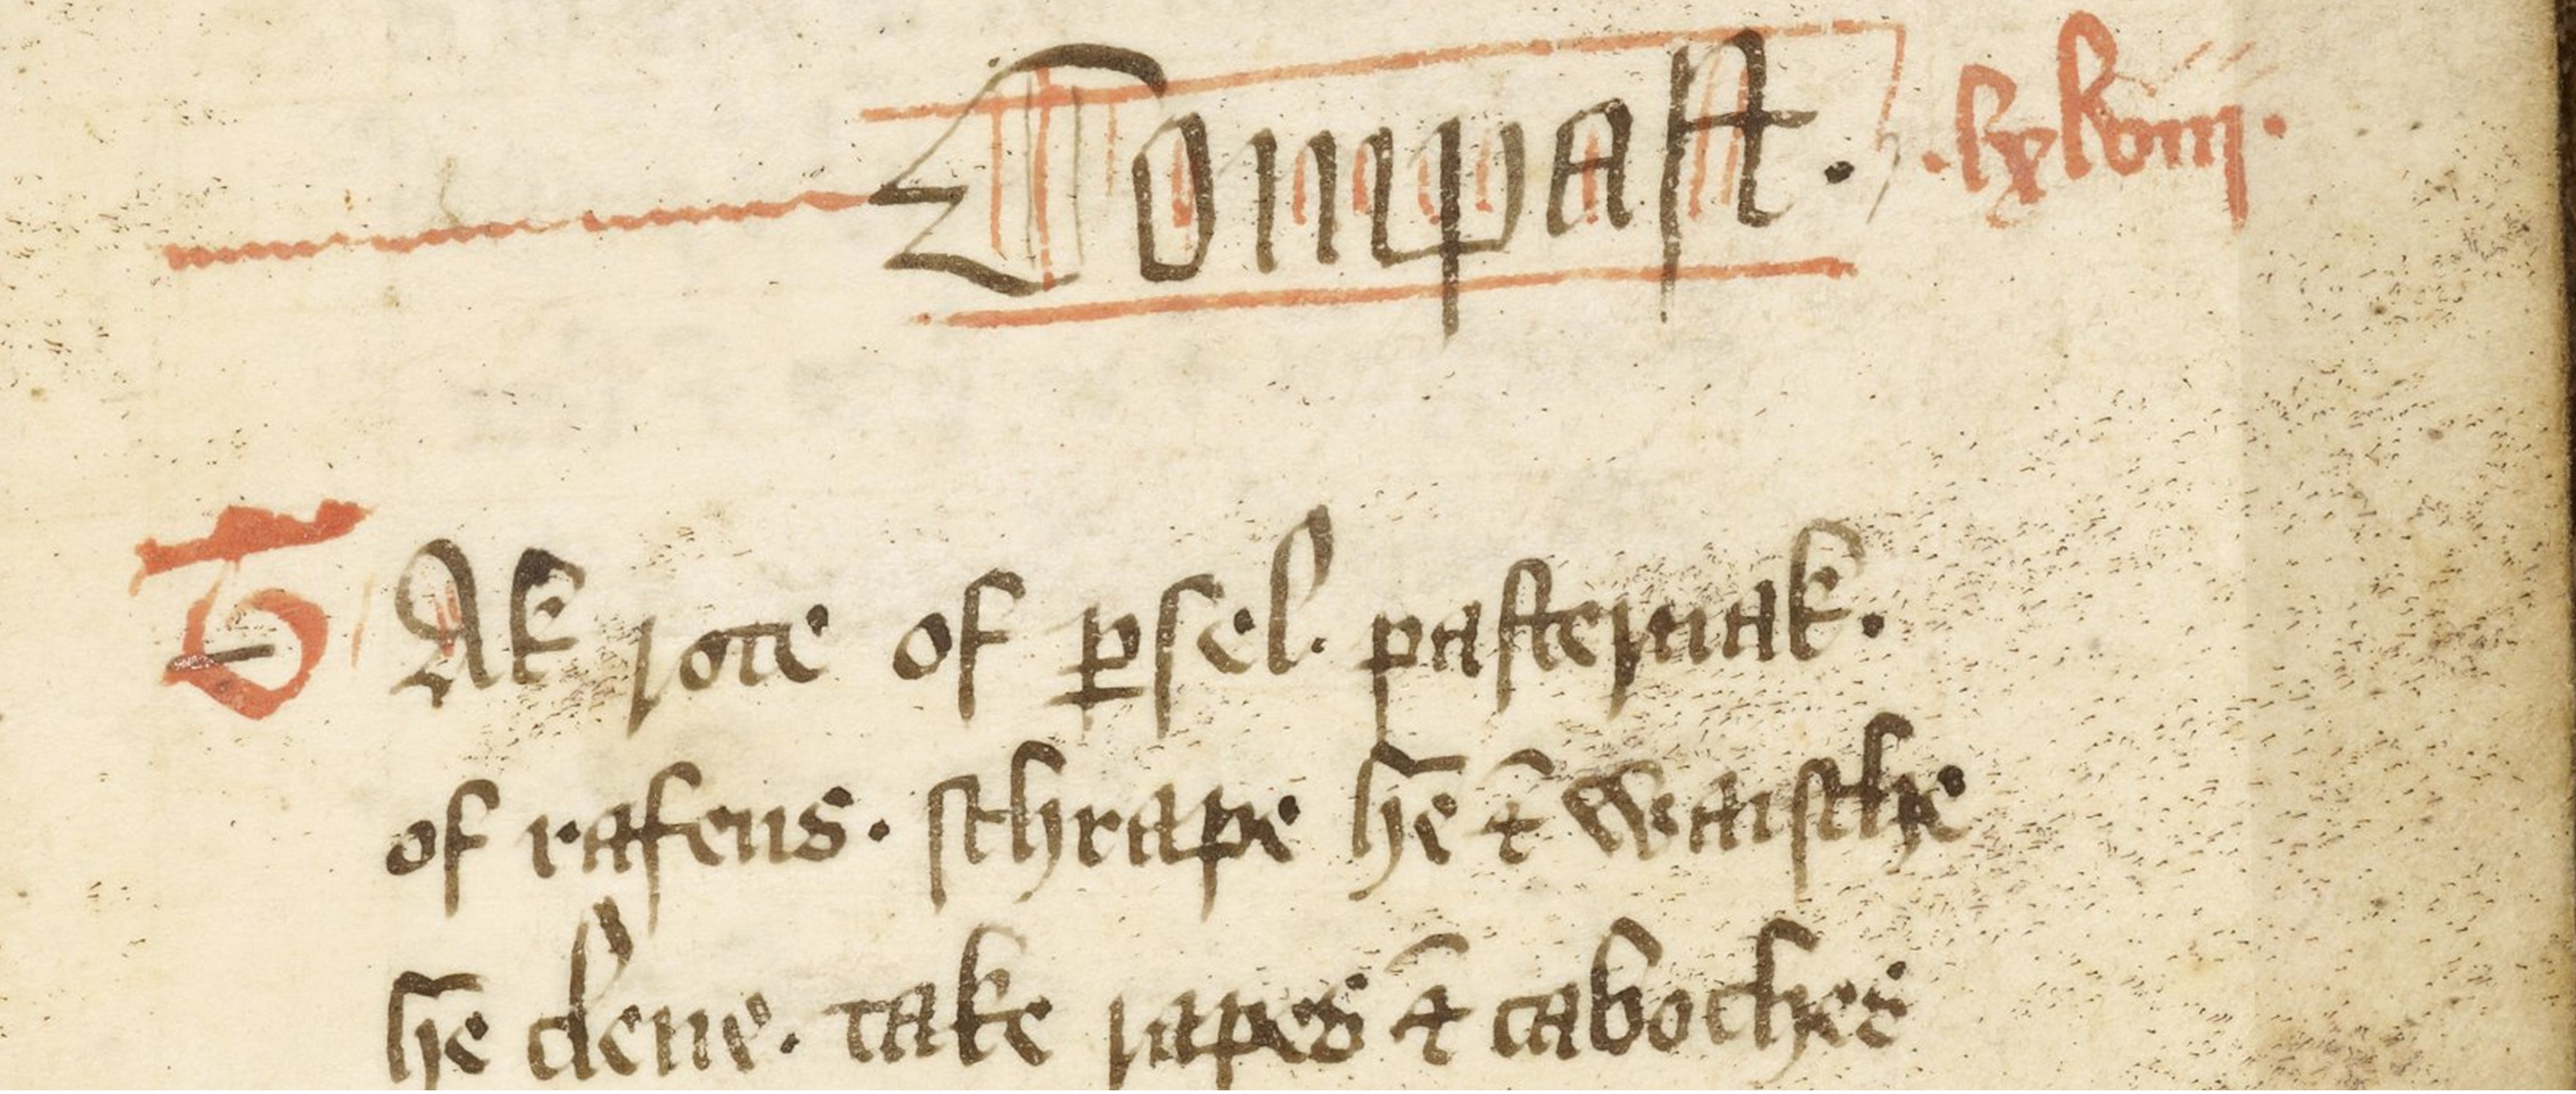 Compast . .lxxlviii.
TAk rote of ꝑsel. pasternak.
of rasens. schrape hē ⁊ waische
hē clene. take rapes ⁊ caboches